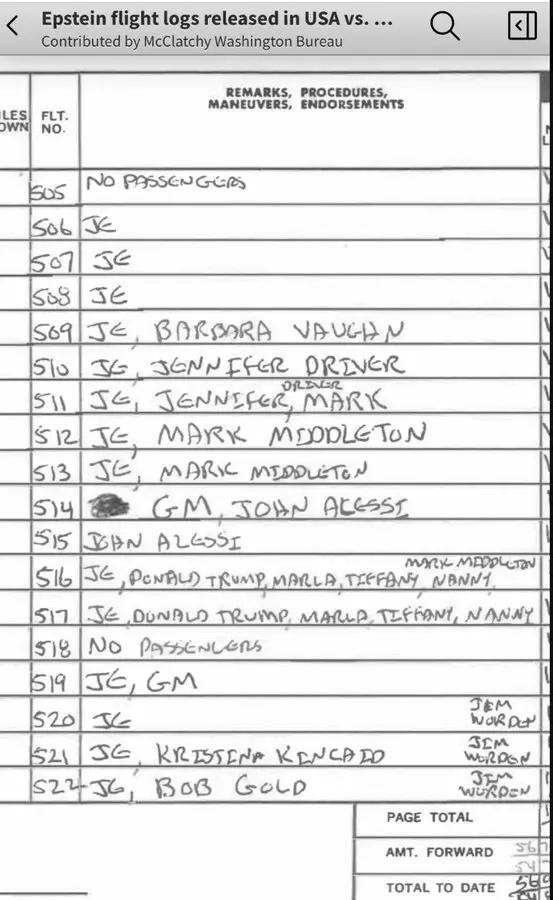 Epstein flight logs released in USA vs. ...
Contributed by McClatchy Washington Bureau
ILES
OWN
FLT.
NO.
REMARKS, PROCEDURES,
MANEUVERS, ENDORSEMENTS
505 NO PASSENGERS
506 JE
507 JE
508 JE
509 JE, BARBARA VAUGHN
510 JE, JENNIFER DRIVER
DRIVER
511 JE, JENNIFER, MARK
512 JE, MARK MIDDLETON
513 JE, MARK MIDDLETON
514 GM, JOHN ALESSI
515 JOHN ALESSI
MARK MIDDLETON
516 JE, DONALD TRUMP, MARLA, TIFFANY, NANNY,
517 JE, DONALD TRUMP, MARLA, TIFFANY, NANNY
518 NO PASSENGERS
519 JE, GM
JIM
520 JE WORDEN
JIM
521 JE, KRISTINA KINCAID WORDEN
JIM
522 JE, BOB GOLD WORDEN
PAGE TOTAL
AMT. FORWARD
TOTAL TO DATE